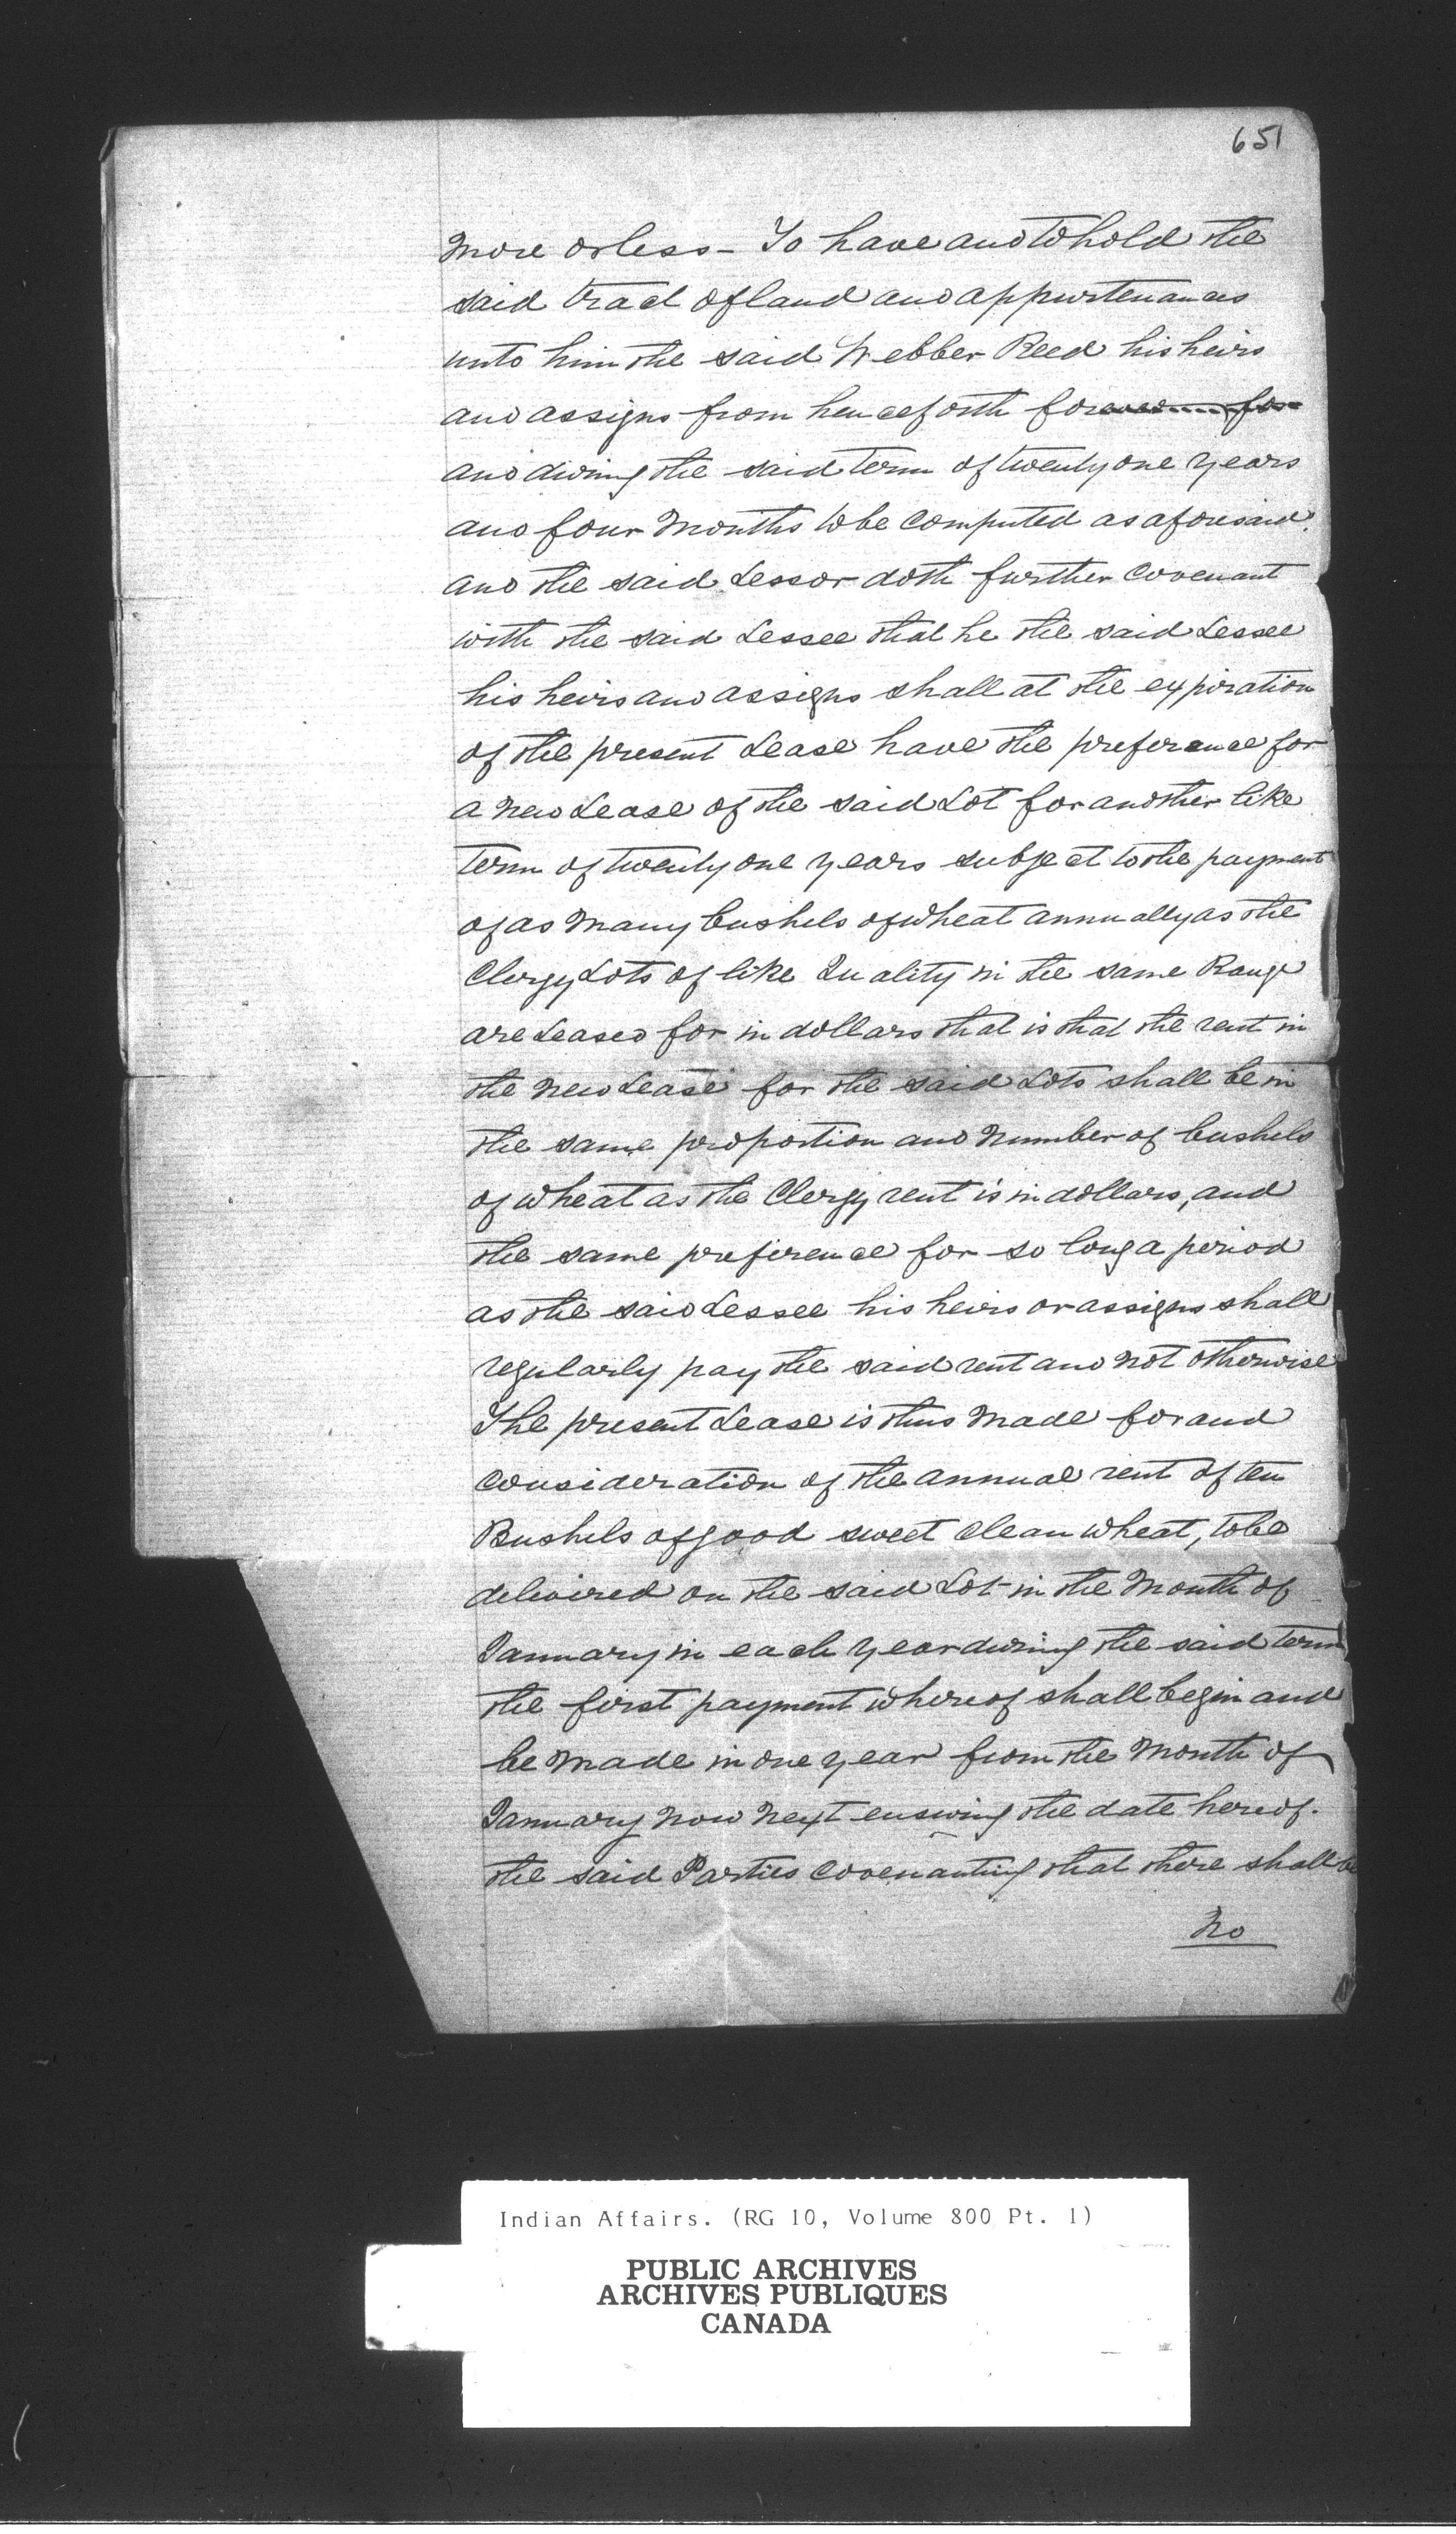 651
more or less – To have and to hold the
said tract of land and appurtenances
unto him the said Webber Reed his heirs
and assigns from henceforth forever for
and during the said term of twenty one years
and four Months to be computed as aforesaid.
and the said Lessor doth further covenant
with the said Lessee that he the said Lessee
his heirs and assigns shall at the expiration
of the present Lease have the preference for
a new Lease of the said Lot for another like
term of twenty one years subject to the payment
of as many bushels of wheat annually as the
Clergy Lots of like Quality in the same Range
are Leased for in dollars that is that the rent in
the new Lease for the said Lots shall be in
the same proportion and number of bushels
of wheat as the Clergy rent is in dollars, and
the same preference for so long a period
as the said Lessee his heirs or assigns shall
regularly pay the said rent and not otherwise
The present Lease is thus made for and
consideration of the annual rent of ten
Bushels of good sweet clean wheat, to be
delivered on the said Lot in the Month of
January in each year during the said term
the first payment whereof shall begin and
be made in one year from the Month of
January now next ensuing the date hereof.
the said Parties covenanting that there shall be
no
Indian Affairs. (RG 10, Volume 800 Pt. 1)
PUBLIC ARCHIVES
ARCHIVES PUBLIQUES
CANADA